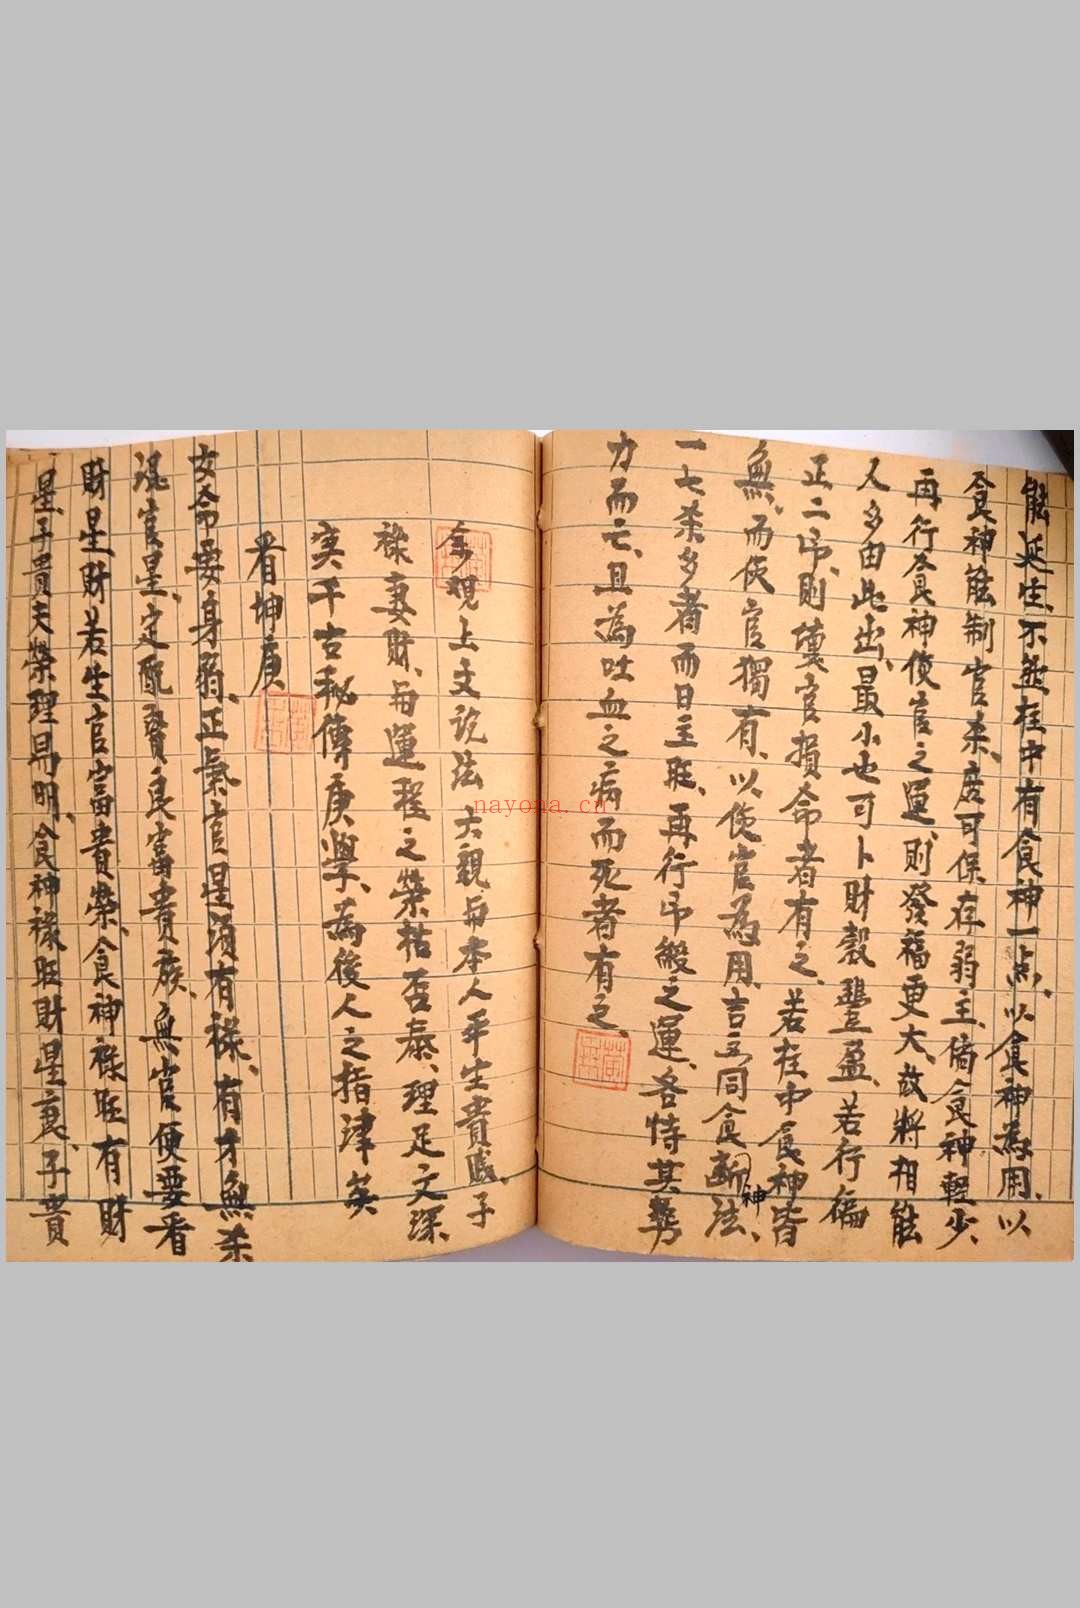 能延生、不然柱中有食神一点、以食神為用、以
食神能制官杀、庶可保存弱主、倘食神輕少、
再行食神使官之運、則發福更大、故將相能
人多由此出、最小也可卜財穀豐盈、若行偏
正二卩、則壞官損命者有之、若柱中食神皆
無、而使官獨有、以使官為用、吉凶同食神断法、
一七杀多者而日主旺、再行卩綬之運、各恃其勢
力而亡、且為吐血之病而死者有之、
余观上文說法六親与本人平生貴賎、子
祿妻財、与運程之榮枯否泰、理足文深、
实千古秘傳庚學、為後人之指津英
看坤庚
女命要身弱、正氣官星須有祿、有才無杀
混官星、定配賢良富貴族、無官便要看
財星財若生官富貴榮、食神祿旺有財
星、子貴夫榮理昜明、食神祿旺財星衰、子貴
nayona.cn